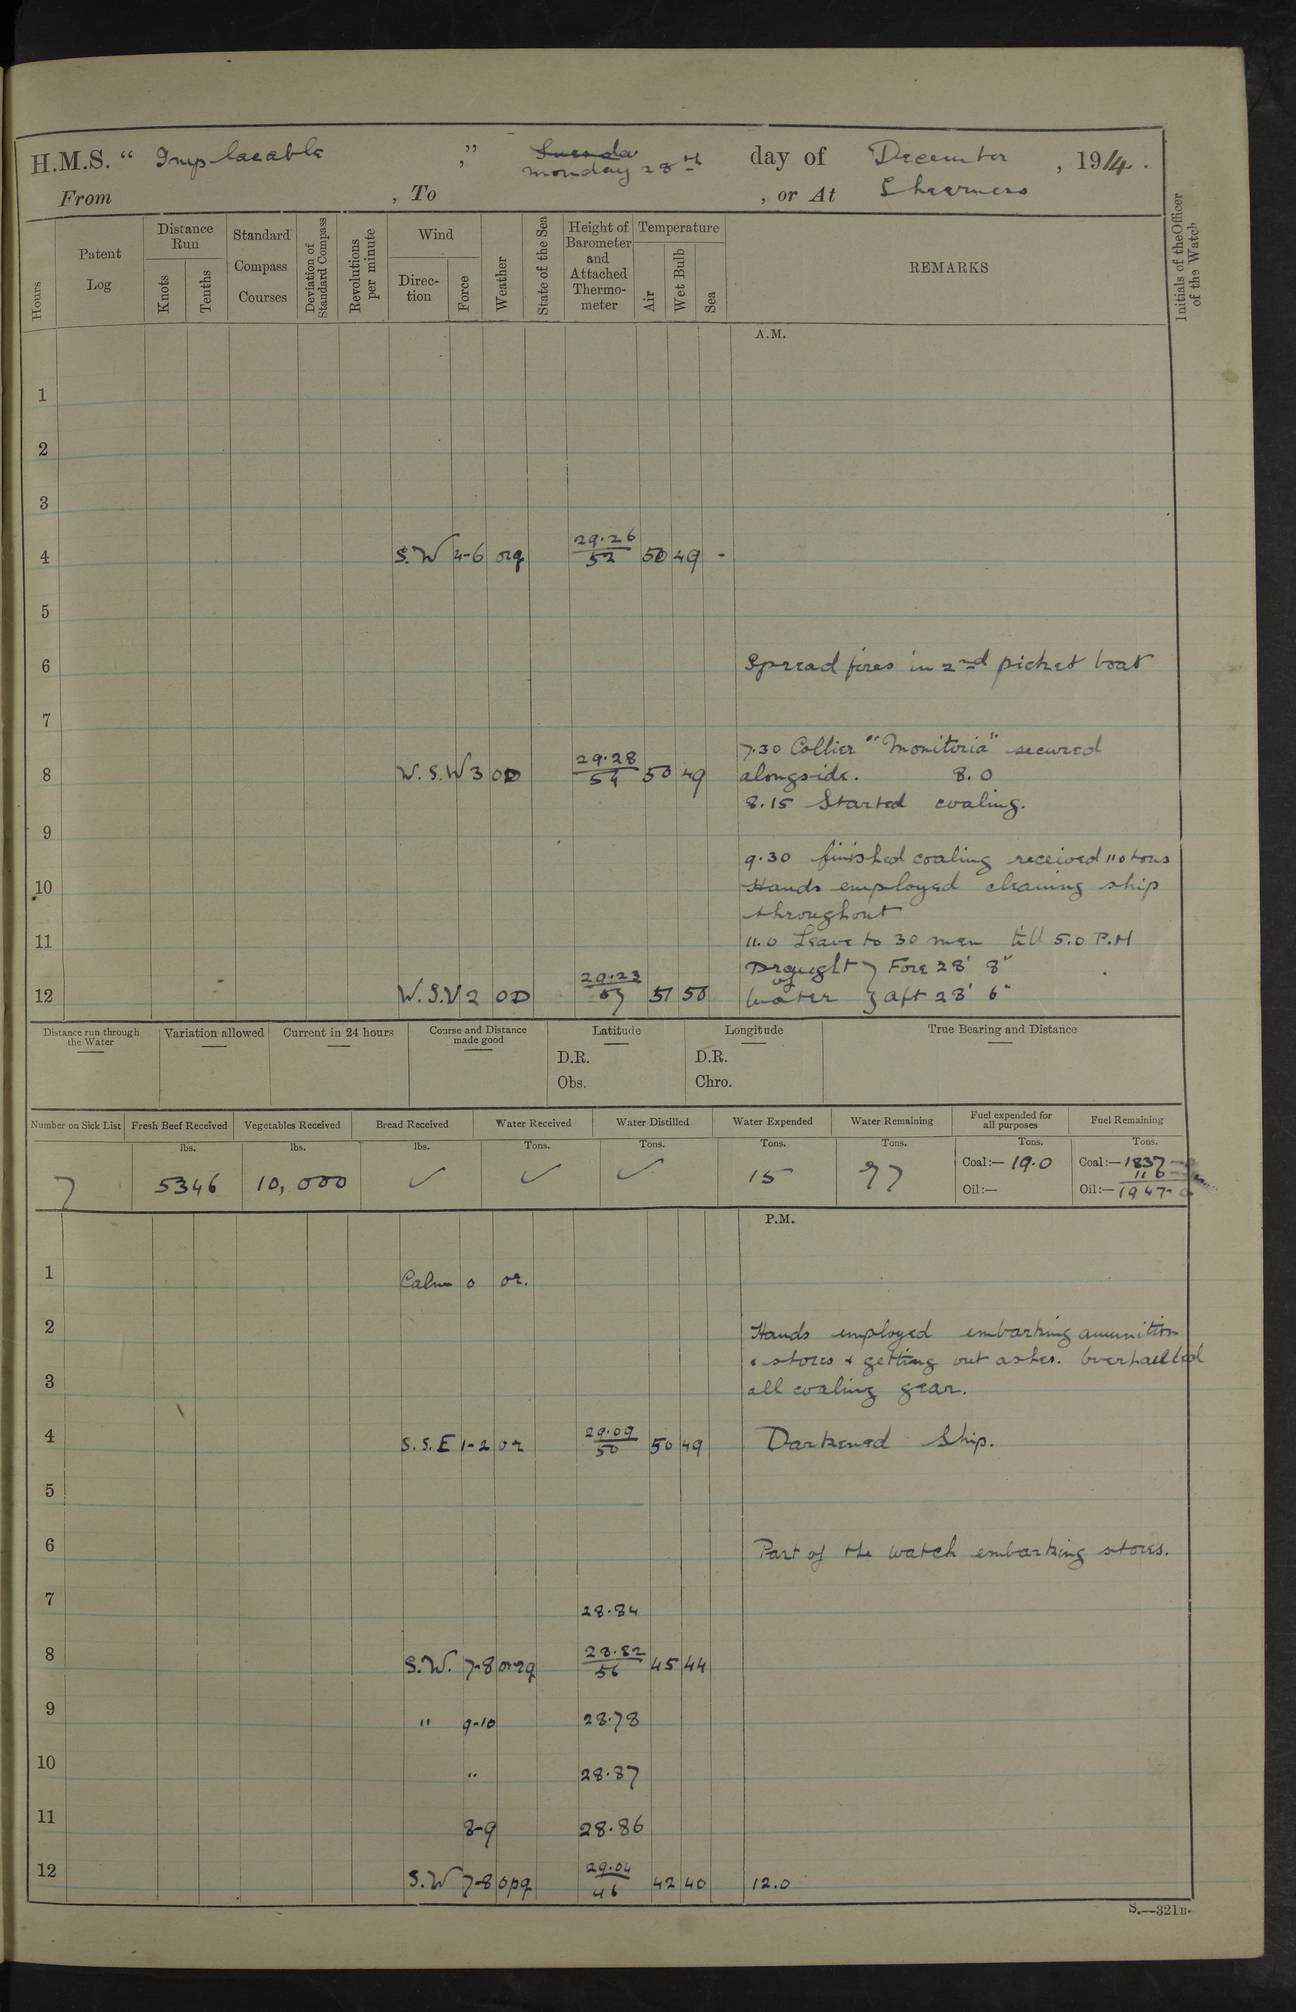 H.M.S. “ Implacable ,” Monday 28th day of December , 1914 .
From , To , or At Sheerness
Hours
Patent Log
Distance Run
Knots
Tenths
Standard Compass Courses
Deviation of Standard Compass
Revolutions per minute
Wind
Direc-tion
Force
Weather
State of the Sea
Height of Barometer and Attached Thermo-meter
Temperature
Air
Wet Bulb
Sea
REMARKS
Initials of the Officer of the Watch
A.M.
1
2
3
4 S.W 4-6 orq 29.26 52 50 49 -
5
6 Spread fires in 2nd picket boat
7
7.30 Collier "Monitoria" secured
8 W.S.W 3 OD 29.28 54 50 49 alongside. 8.0
8.15 Started coaling.
9
9.30 finished coaling received 110 tons
10 Hands employed cleaning ship
throughout
11 11.0 Leave to 30 men till 5.0 P.M
Draught } Fore 28' 8"
of
12 W.S.W 2 OD 29.23 51 50 Water } aft 28' 6"
Distance run through the Water
Variation allowed
Current in 24 hours
Course and Distance made good
Latitude
D.R.
Obs.
Longitude
D.R.
Chro.
True Bearing and Distance
Number on Sick List
Fresh Beef Received
Vegetables Received
Bread Received
Water Received
Water Distilled
Water Expended
Water Remaining
Fuel expended for all purposes
Fuel Remaining
lbs. lbs. lbs. Tons. Tons. Tons. Tons. Tons. Tons.
7 5346 10,000 ✓ ✓ ✓ 15 97 Coal:— 19.0 Coal:— 1837
110
Oil:— Oil:— 1947
P.M.
1 Calm 0 or.
2 Hands employed embarking amunition
& stores & getting out ashes. Overhaulled
3 all coaling gear.
4 S.S.E 1-2 or 29.09 50 50 49 Darkened Ship.
5
6 Part of the watch embarking stores.
7 28.84
8 S.W. 7-8 orq 28.82 56 45 44
9 " 9-10 28.78
10 " 28.87
11 8-9 28.86
12 S.W 7-8 opq 29.04 46 42 40 12.0
S.—321B.